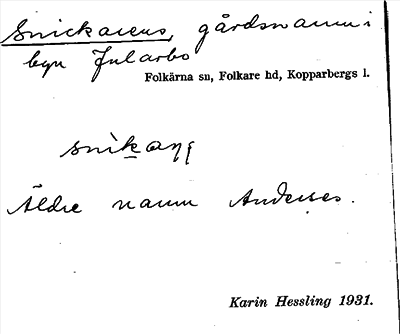 Snickarens, gårdsnamn i
byn Jularbo
Folkärna sn, Folkare hd, Kopparbergs l.
Äldre namn Anderses.
Karin Hessling 1931.